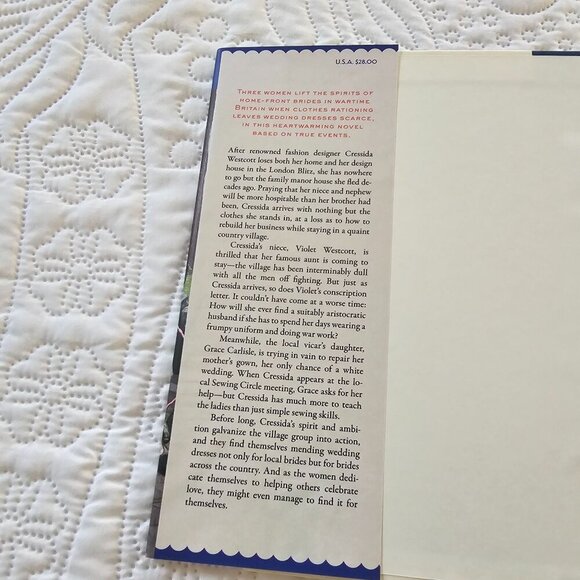 U.S.A. $28.00
THREE WOMEN LIFT THE SPIRITS OF
HOME-FRONT BRIDES IN WARTIME
BRITAIN WHEN CLOTHES RATIONING
LEAVES WEDDING DRESSES SCARCE,
IN THIS HEARTWARMING NOVEL
BASED ON TRUE EVENTS.
After renowned fashion designer Cressida
Westcott loses both her home and her design
house in the London Blitz, she has nowhere
to go but the family manor house she fled de-
cades ago. Praying that her niece and nephew
will be more hospitable than her brother had
been, Cressida arrives with nothing but the
clothes she stands in, at a loss as to how to
rebuild her business while staying in a quaint
country village.
Cressida's niece, Violet Westcott, is
thrilled that her famous aunt is coming to
stay—the village has been interminably dull
with all the men off fighting. But just as
Cressida arrives, so does Violet's conscription
letter. It couldn't have come at a worse time:
How will she ever find a suitably aristocratic
husband if she has to spend her days wearing a
frumpy uniform and doing war work?
Meanwhile, the local vicar's daughter,
Grace Carlisle, is trying in vain to repair her
mother's gown, her only chance of a white
wedding. When Cressida appears at the lo-
cal Sewing Circle meeting, Grace asks for her
help—but Cressida has much more to teach
the ladies than just simple sewing skills.
Before long, Cressida's spirit and ambi-
tion galvanize the village group into action,
and they find themselves mending wedding
dresses not only for local brides but for brides
across the country. And as the women dedi-
cate themselves to helping others celebrate
love, they might even manage to find it for
themselves.